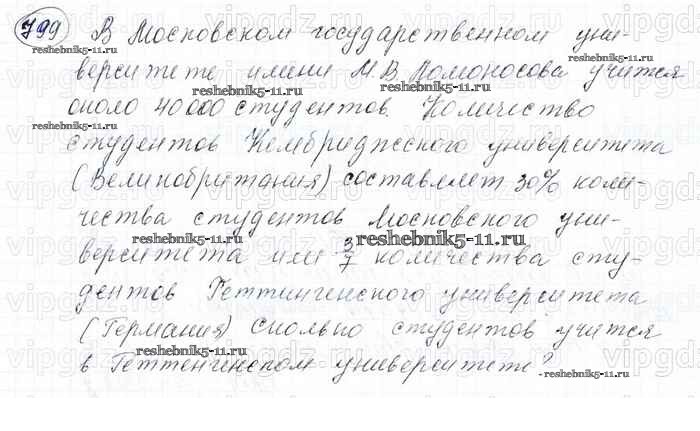 799 В Московском государственном уни-
верситете имени М.В. Ломоносова учится
около 40 000 студентов. Количество
студентов Кембриджского университета
(Великобритания) составляет 30% коли-
чества студентов Московского уни-
верситета или 3/7 количества сту-
дентов Геттингенского университета
(Германия) Сколько студентов учится
в Геттенгинском университете?
reshebnik5-11.ru
reshebnik5-11.ru
reshebnik5-11.ru
reshebnik5-11.ru
reshebnik5-11.ru
reshebnik5-11.ru
reshebnik5-11.ru
reshebnik5-11.ru
vipgdz.ru